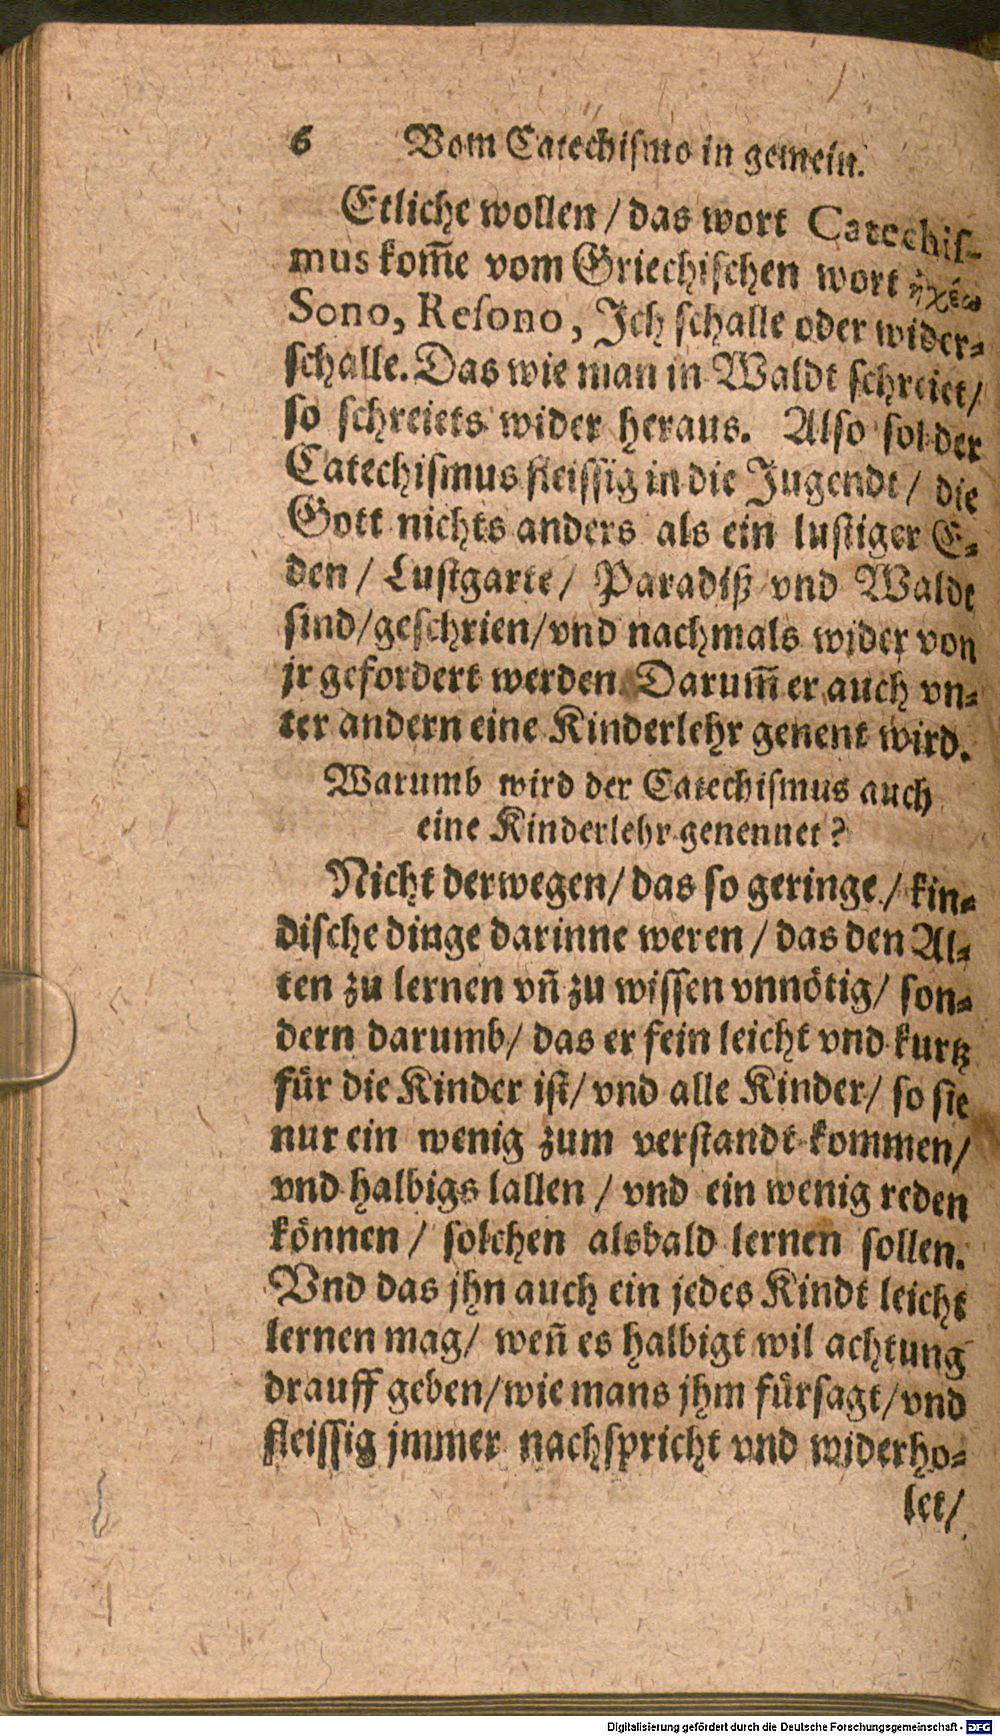 6 Vom Catechiſmo in gemein.
Etliche wollen / das wort Catechiſ-
mus kom̃e vom Griechiſchen wort ἠχέω
Sono, Reſono, Jch ſchalle oder wider-
ſchalle. Das wie man in Waldt ſchreiet /
ſo ſchreiets wider heraus. Alſo ſol der
Catechiſmus fleiſſig in die Jugendt / die
Gott nichts anders als ein luſtiger E-
den / Luſtgarte / Paradiß vnd Waldt
ſind / geſchrien / vnd nachmals wider von
jr gefordert werden. Darum̃ er auch vn-
ter andern eine Kinderlehr genent wird.
Warumb wird der Catechiſmus auch
eine Kinderlehr genennet?
Nicht derwegen / das ſo geringe / kin-
diſche dinge darinne weren / das den Al-
ten zu lernen vñ zu wiſſen vnnötig / ſon-
dern darumb / das er fein leicht vnd kurtz
für die Kinder iſt / vnd alle Kinder / ſo ſie
nur ein wenig zum verſtandt kommen /
vnd halbigs lallen / vnd ein wenig reden
können / ſolchen alsbald lernen ſollen.
Vnd das jhn auch ein jedes Kindt leicht
lernen mag / weñ es halbigt wil achtung
drauff geben / wie mans jhm fürſagt / vnd
fleiſſig jmmer nachſpricht vnd widerho-
let /
Digitalisierung gefördert durch die Deutsche Forschungsgemeinschaft - DFG